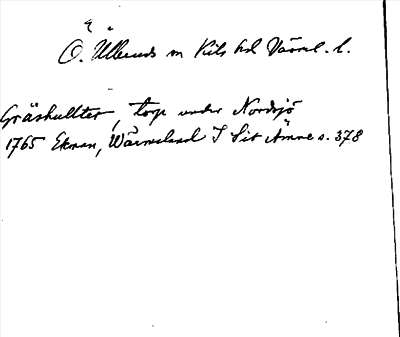 Ö. Ulleruds sn Kils hd Värml. l.
Gräshulltet, torp under Nordsjö
1765 Ekman, Wärmeland I Sit Ämne s. 378